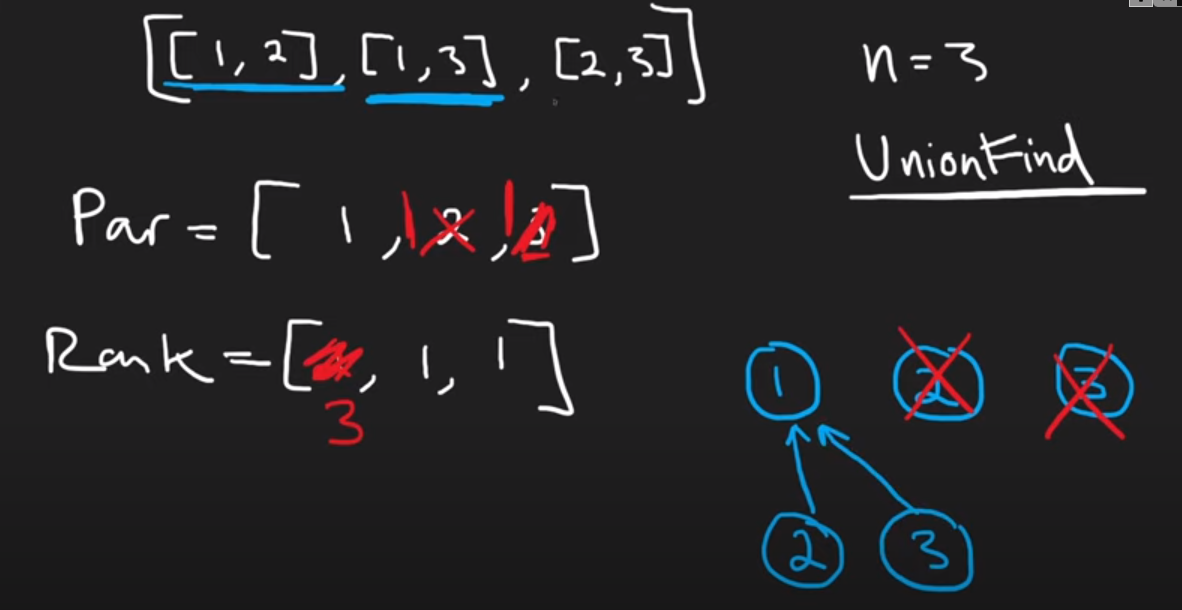 [[1, 2], [1, 3], [2, 3]]
n = 3
UnionFind
Par = [ 1, 1 2, 1 3 ]
Rank = [ , 1, 1 ]
3
1 2 3
2 3